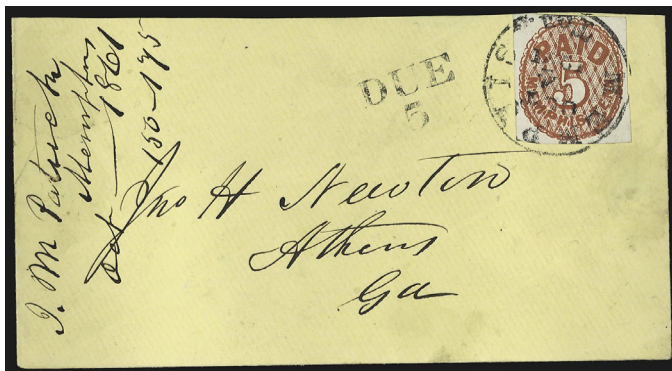 J. M Patrick
Memphis
1861
150–175
DUE
5
PAID
5
MEMPHIS TEN
Jno H Newton
Athens
Ga